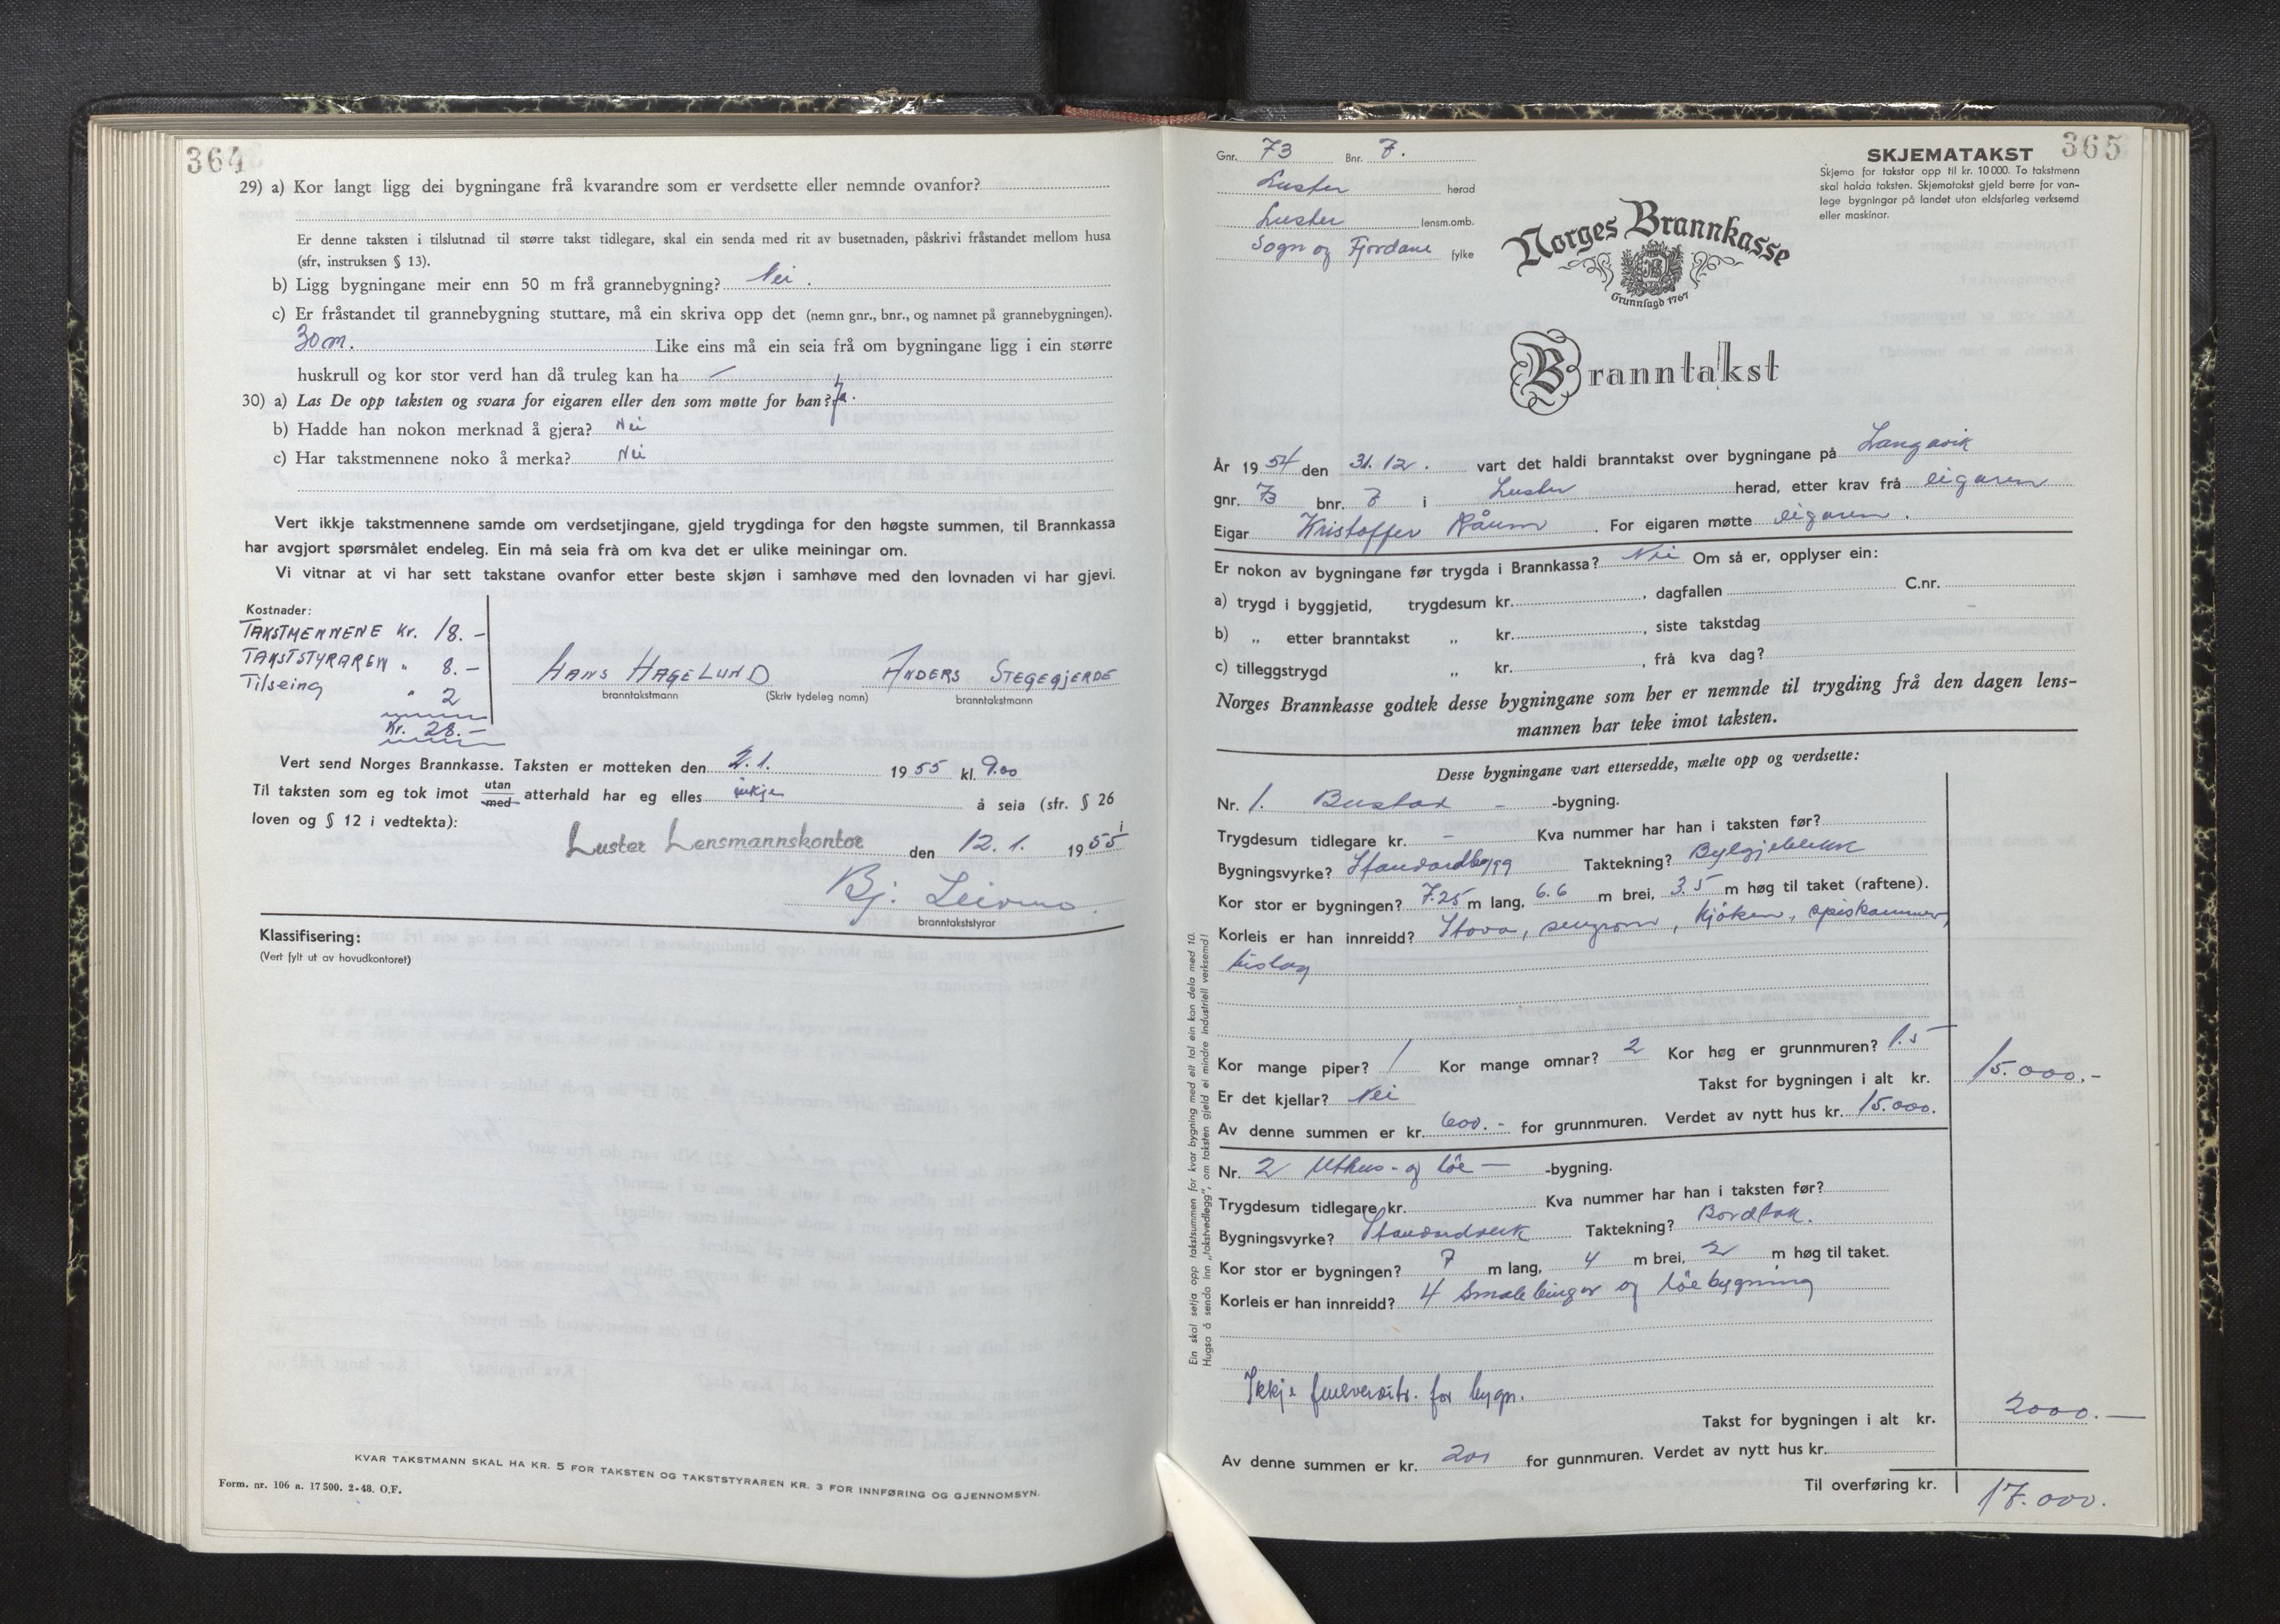 364
29) a) Kor langt ligg dei bygningane frå kvarandre som er verdsette eller nemnde ovanfor?
Er denne taksten i tilslutnad til større takst tidlegare, skal ein senda med rit av busetnaden, påskrivi fråstandet mellom husa
(sfr, instruksen § 13).
b) Ligg bygningane meir enn 50 m frå grannebygning? Nei.
c) Er fråstandet til grannebygning stuttare, må ein skriva opp det (nemn gnr., bnr., og namnet på grannebygningen).
30 m. Like eins må ein seia frå om bygningane ligg i ein større
huskrull og kor stor verd han då truleg kan ha —
30) a) Las De opp taksten og svara for eigaren eller den som møtte for han? Ja.
b) Hadde han nokon merknad å gjera? Nei
c) Har takstmennene noko å merka? Nei
Vert ikkje takstmennene samde om verdsetjingane, gjeld trygdinga for den høgste summen, til Brannkassa
har avgjort spørsmålet endeleg. Ein må seia frà om kva det er ulike meiningar om.
Vi vitnar at vi har sett takstane ovanfor etter beste skjøn i samhøve med den lovnaden vi har gjevi.
Kostnader:
TAKSTMENNENE Kr. 18.-
TAKSTSTYRAREN " 8.-
Tilseing " 2
Kr. 28.-
HANS HAGELUND ANDERS STEGEGJERDE
branntakstmann (Skriv tydeleg namn) branntakstmann
Vert send Norges Brannkasse. Taksten er motteken den 2.1. 1955 kl. 9.00
Til taksten som eg tok imot utan/med atterhald har eg elles inkje å seia (sfr. § 26
loven og § 12 i vedtekta):
Luster Lensmannskontor den 12.1. 1955
Bj. Leirmo
branntakststyrar
Klassifisering:
(Vert fylt ut av hovudkontoret)
KVAR TAKSTMANN SKAL HA KR. 5 FOR TAKSTEN OG TAKSTSTYRAREN KR. 3 FOR INNFØRING OG GJENNOMSYN.
Form. nr. 106 a. 17 500. 2-48. O.F.
365
Gnr. 73 Bnr. 7.
Luster herad
Luster lensm.omb.
Sogn og Fjordane fylke
SKJEMATAKST
Skjema for takstar opp til kr. 10 000. To takstmenn
skal halda taksten. Skjematakst gjeld berre for van-
lege bygningar på landet utan eldsfarleg verksemd
eller maskinar.
Norges Brannkasse
Grunnlagd 1767
Branntakst
År 1954 den 31.12. vart det haldi branntakst over bygningane på Langavik
gnr. 73 bnr. 7 i Luster herad, etter krav frå eigaren
Eigar Kristoffer Råum. For eigaren møtte eigaren.
Er nokon av bygningane før trygda i Brannkassa? Nei Om så er, opplyser ein:
a) trygd i byggjetid, trygdesum kr. , dagfallen C.nr.
b) „ etter branntakst „ kr. , siste takstdag
c) tilleggstrygd „ kr. , frå kva dag?
Norges Brannkasse godtek desse bygningane som her er nemnde til trygding frå den dagen lens-
mannen har teke imot taksten.
Desse bygningane vart ettersedde, mælte opp og verdsette:
Nr. 1. Bustad - -bygning.
Trygdesum tidlegare kr. - Kva nummer har han i taksten før?
Bygningsvyrke? Standardbygg Taktekning? Bylgjeblekk
Kor stor er bygningen? 7.25 m lang, 6.6 m brei, 3.5 m høg til taket (raftene).
Korleis er han innreidd? Stova, sengrom, kjøken, spiskammer,
bislag
Kor mange piper? 1 Kor mange omnar? 2 Kor høg er grunnmuren? 1.5
Takst for bygningen i alt kr. 15.000.-
Er det kjellar? Nei
Av denne summen er kr. 600.- for grunnmuren. Verdet av nytt hus kr. 15.000.
Nr. 2 Uthus- og löe — -bygning.
Trygdesum tidlegare kr. Kva nummer har han i taksten før?
Bygningsvyrke? Standardverk Taktekning? Bordtak.
Kor stor er bygningen? 7 m lang, 4 m brei, 2 m høg til taket.
Korleis er han innreidd? 4 Smalebingar og löebygning
Ikkje for bygn.
Takst for bygningen i alt kr. 2000.—
Av denne summen er kr. 200 for gunnmuren. Verdet av nytt hus kr.
Til overføring kr. 17.000.
Ein skal setja opp takstsummen for kvar bygning med eit tal ein kan dela med 10.
Hugsa å senda inn „takstvedlegg", om taksten gjeld ei mindre industriell verksemd!